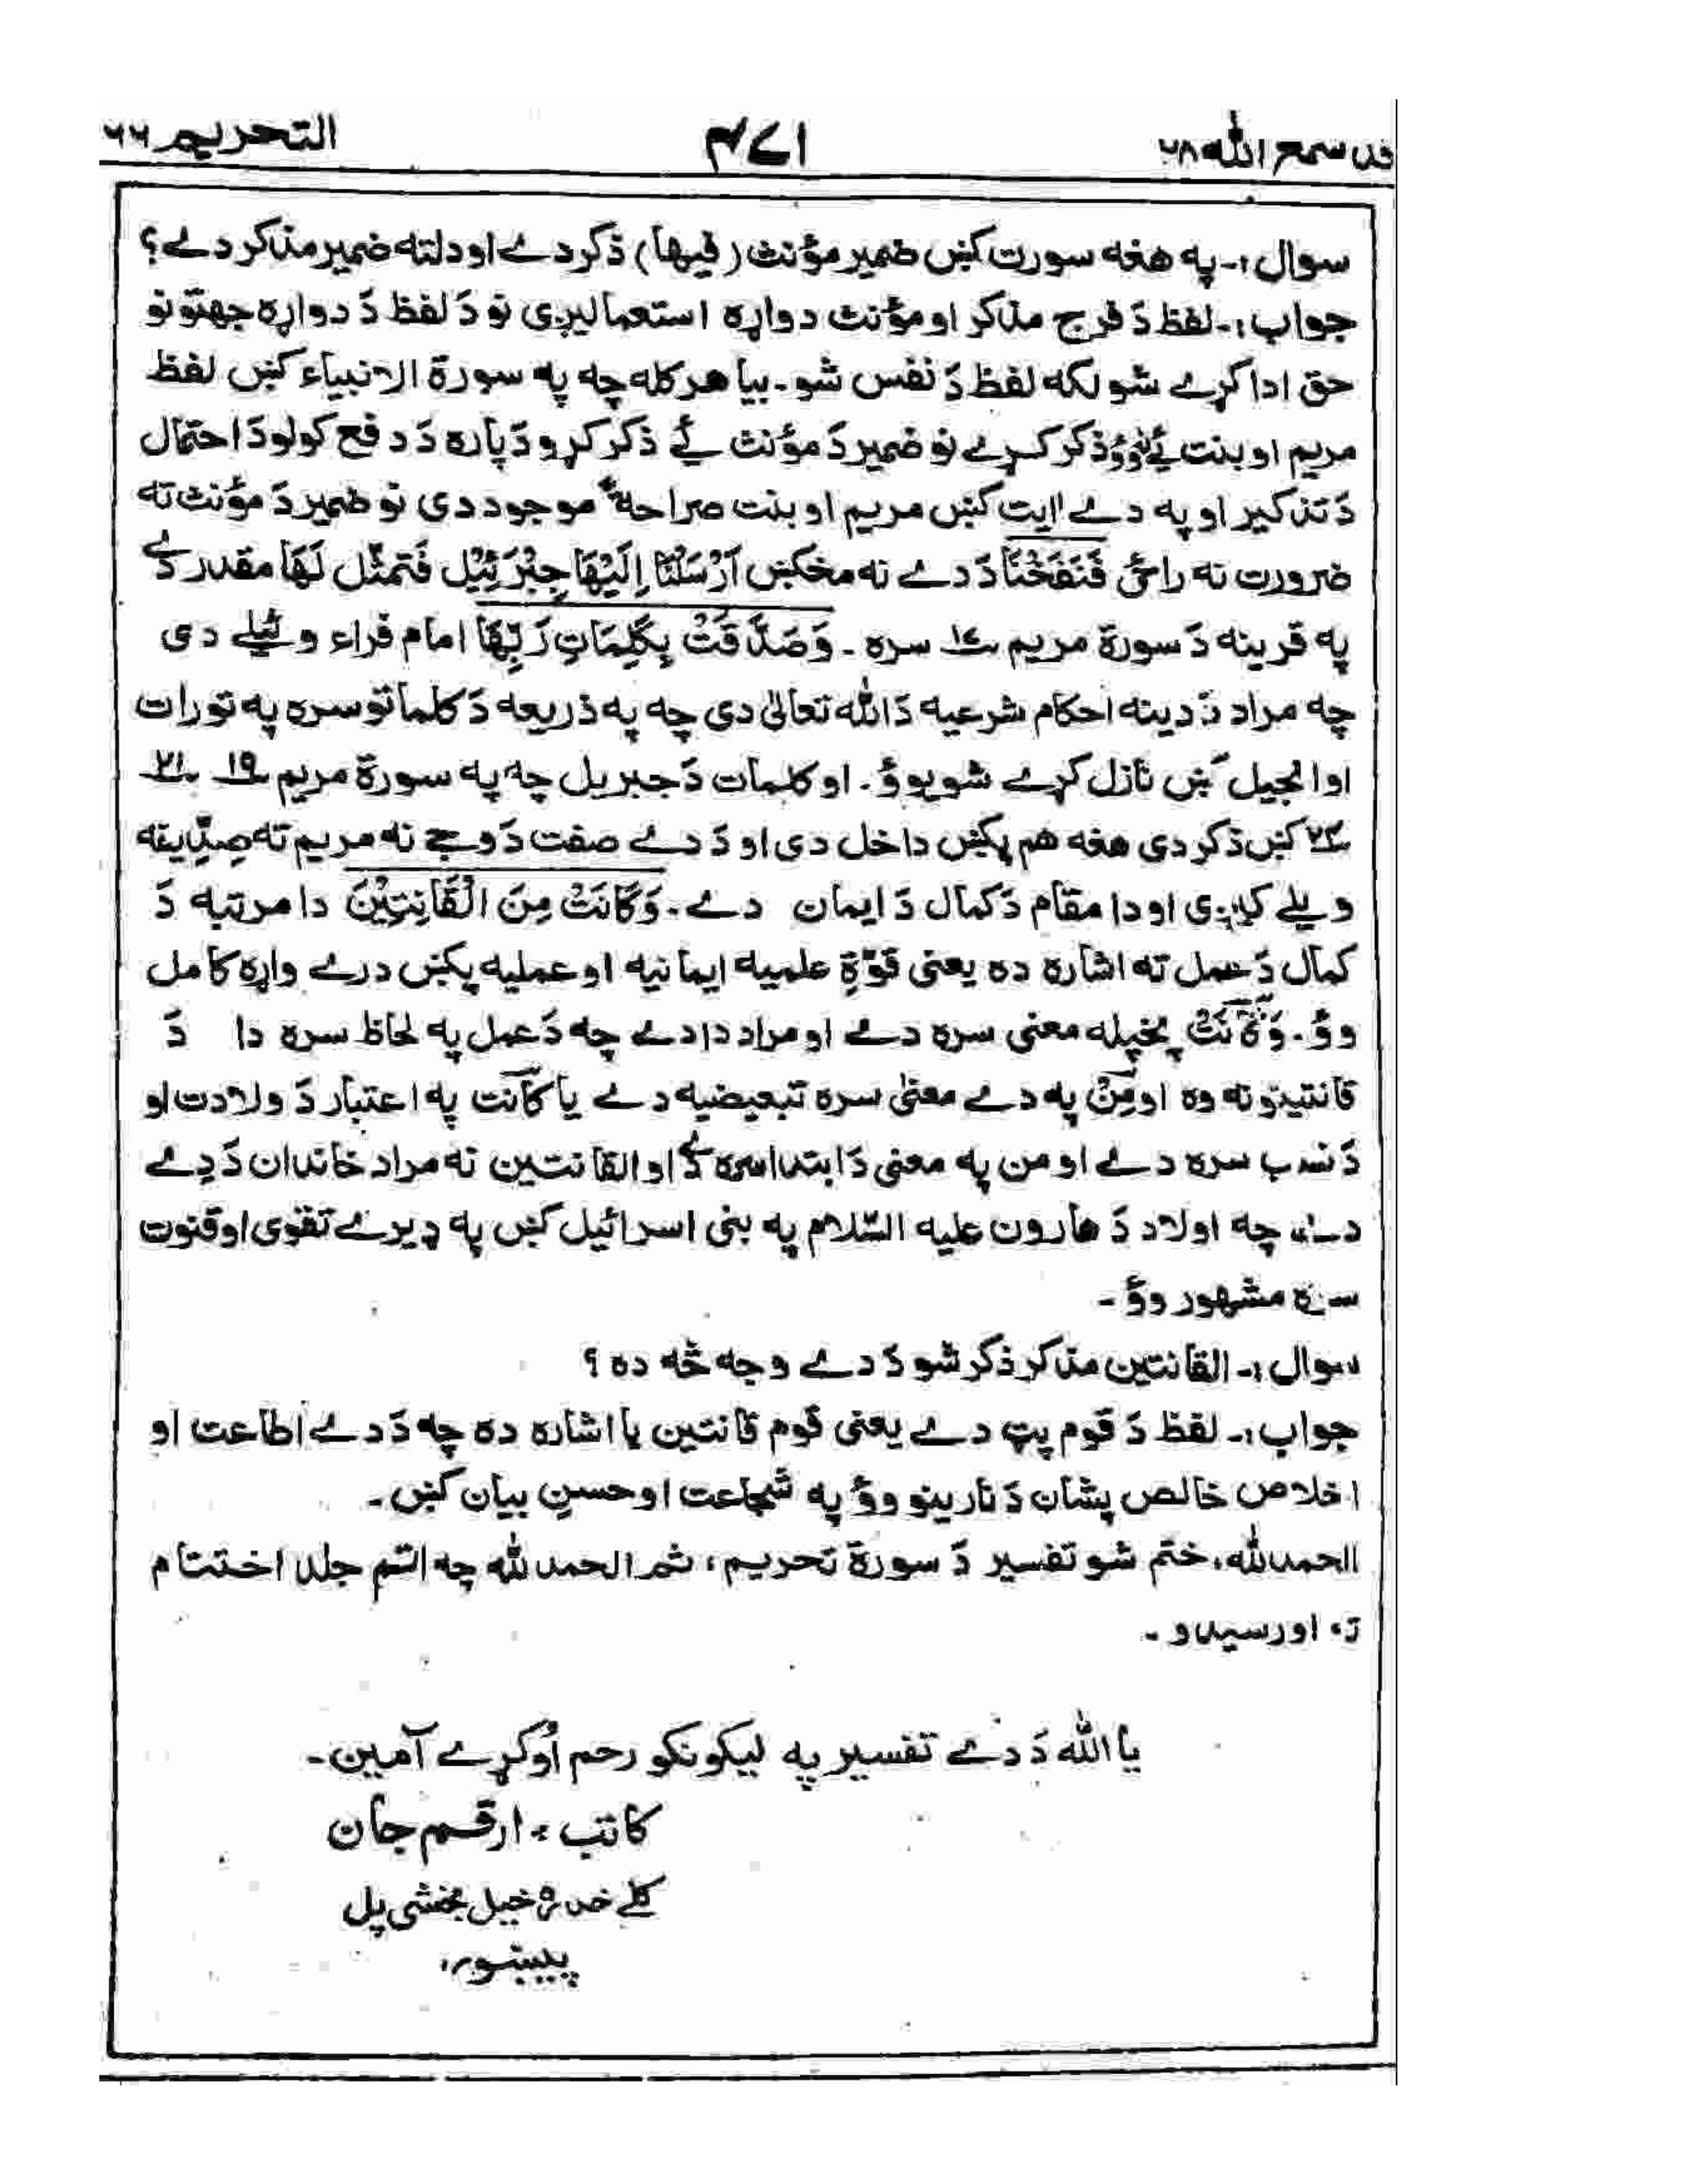 قد سمع الله ۲۸
۴۷۱
التحریم ۶۶
سوال:۔ په هغه سورت کښ ضمیر مؤنث (فیها) ذکر دے او دلته ضمیر مذکر دے؟
جواب:۔ لفظ دَ فرج مذکر او مؤنث دواړه استعمالیږی نو دَ لفظ دَ دواړه جهتونو
حق ادا کړے شو لکه لفظ دَ نفس شو۔ بیا هر کله چه په سورة الانبیاء کښ لفظ
مریم او بنت ئے نهٔ وؤ ذکر کړے نو ضمیر دَ مؤنث ئے ذکر کړو دَ پاره دَ دفع کولو دَ احتمال
دَ تذکیر او په دے اٰیت کښ مریم او بنت صراحةً موجود دی نو ضمیر دَ مؤنث ته
ضرورت نه راځی فَنَفَخْنَا دَ دے نه مخکښ اَرْسَلْنَا اِلَيْهَا جِبْرَئِيْل فَتَمَثَّل لَهَا مقدر دے
په قرینه دَ سورة مریم ۱۷ سره ۔ وَصَدَّقَتْ بِكَلِمَاتِ رَبِّهَا امام فراء وئیلے دی
چه مراد دَ دینه احکام شرعیه دَ الله تعالیٰ دی چه په ذریعه دَ کلماتو سره په تورات
او انجیل کښ نازل کړے شویوؤ ۔ او کلمات دَ جبریل چه په سورة مریم ۱۹ ۲۱
۲۴ کښ ذکر دی هغه هم پکښ داخل دی او دَ دے صفت دَ وجے نه مریم ته صِدِّیقه
ویلے کیږی او دا مقام دَ کمال دَ ایمان دے۔ وَكَانَتْ مِنَ الْقَانِتِيْنَ دا مرتبه دَ
کمال دَ عمل ته اشاره ده یعنی قوّةِ علمیه ایمانیه او عملیه پکښ درے واړه کامل
وؤ۔ وَكَانَتْ پخپله معنی سره دے او مراد دا دے چه دَ عمل په لحاظ سره دا دَ
قانتینو نه وه او مِنْ په دے معنیٰ سره تبعیضیه دے یا کَانَت په اعتبار دَ ولادت او
دَ نسب سره دے او من په معنی دَ ابتدا سره دے او القانتین نه مراد خاندان دَ دِے
دے، چه اولاد دَ هارون علیه السّلام په بنی اسرائیل کښ په ډیرے تقوی او قنوت
سره مشهور وؤ ۔
سوال:۔ القانتین مذکر ذکر شو دَ دے وجه څه ده ؟
جواب:۔ لفظ دَ قوم پټ دے یعنی قوم قانتین یا اشاره ده چه دَ دے اطاعت او
اخلاص خالص پشان دَ نارینو وؤ په شجاعت او حسنِ بیان کښ۔
الحمدلله، ختم شو تفسیر دَ سورة تحریم، ثمر الحمدلله چه اتم جلد اختتام
ته اورسیدو ۔
یا الله دَ دے تفسیر په لیکونکو رحم اُوکړے آمین۔
کاتب : ارقم جان
کلے خدرخیل بخشی پل
پیښور،